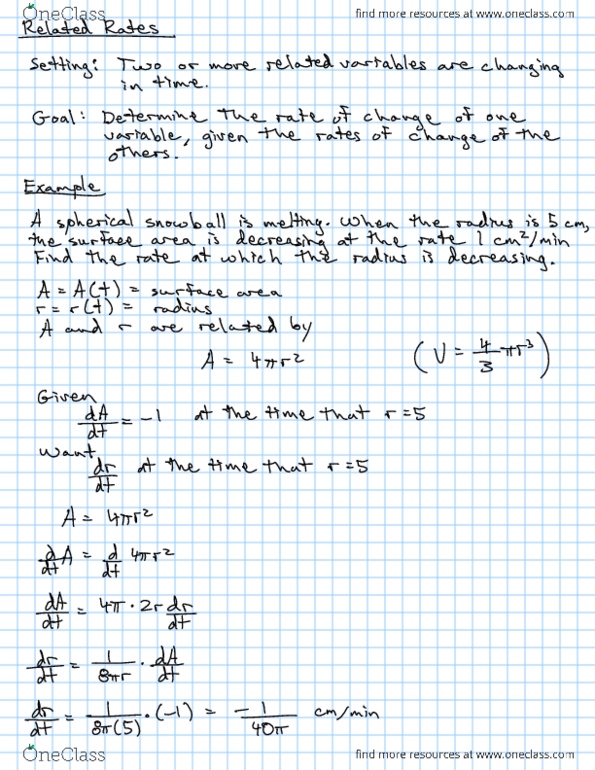 OneClass find more resources at www.oneclass.com
Related Rates
Setting: Two or more related variables are changing
in time.
Goal: Determine the rate of change of one
variable, given the rates of change of the
others.
Example
A spherical snowball is melting. When the radius is 5 cm,
the surface area is decreasing at the rate 1 cm²/min
Find the rate at which the radius is decreasing.
A = A(t) = surface area
r = r(t) = radius
A and r are related by
A = 4πr² (V = 4/3 πr³)
Given
dA/dt = -1 at the time that r = 5
Want
dr/dt at the time that r = 5
A = 4πr²
d/dt A = d/dt 4πr²
dA/dt = 4π · 2r dr/dt
dr/dt = 1/8πr · dA/dt
dr/dt = 1/8π(5) · (-1) = -1/40π cm/min
OneClass find more resources at www.oneclass.com